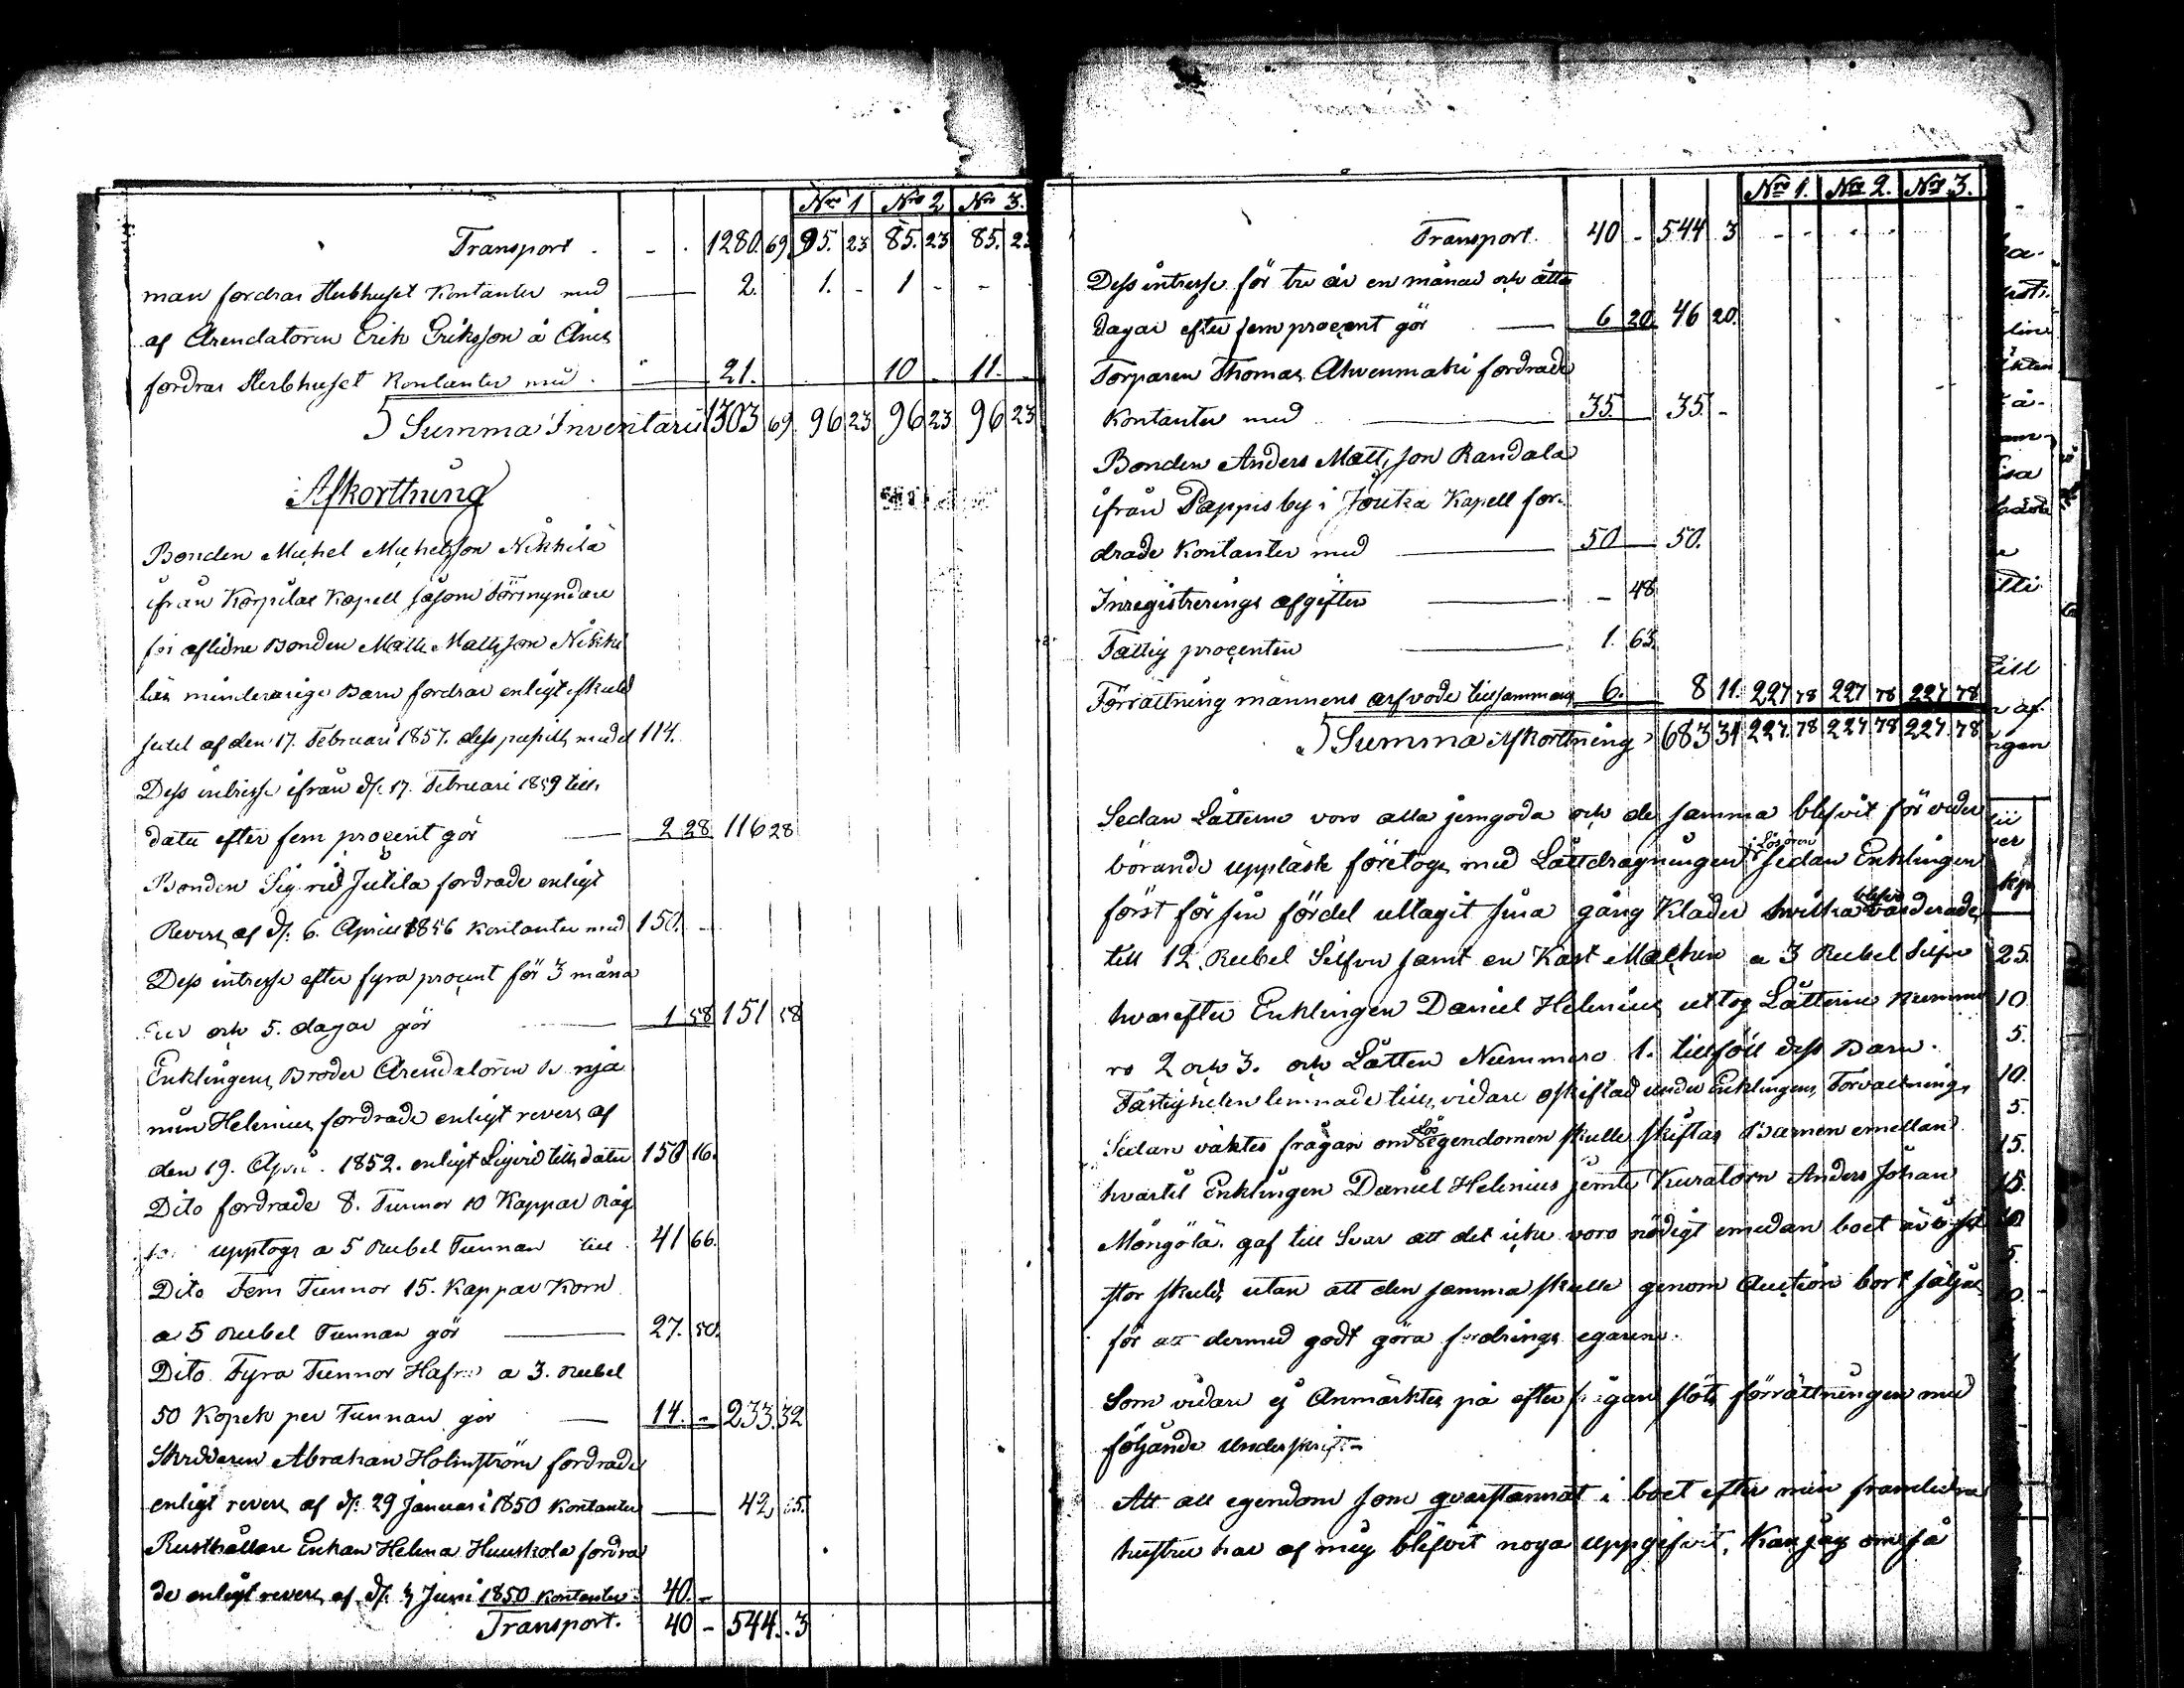 Nro 1 Nro 2 Nro 3.
Transport . - . 1280. 69. 95. 23 85. 23 85. 23
man fordrar Sterbhuset Kontanter med 2. 1. - 1 - -
af Arendatoren Erik Eriksson å
fordrar Sterbhuset Kontanter med . 21. 10 - 11. -
Summa Inventarii 1303 69 96 23 96 23 96 23
Afkorttning
Bonden Michel Michelsson Nikkilä
ifrån Korpilax Kapell såsom Förmyndare
för aflidne Bonden Matts Mattsson Nikki
läs minderarige Barn fordrar enligt skuld
sedel af den 17. Februari 1857. dess pupills medel 114.
Dess intresse ifrån d. 17. Februari 1859 till
dato efter fem procent gör 2 28 116 28
Bonden Sigvrid Jutila fordrade enligt
Revers af d. 6. April 1856 Kontanter med 150. -
Dess intresse efter fyra procent för 3 måna
der och 5. dagar gör 1 58 151 58
Enklingens Broder Arendatoren
Helenius fordrade enligt revers af
den 19. April. 1852. enligt Liqvid till dato 150 16.
Dito fordrade 8. Tunnor 10 Kappar Råg
upptogs a 5 Rubel Tunnan till 41 66.
Dito Fem Tunnor 15. Kappar Korn
a 5 Rubel Tunnan gör 27. 50.
Dito Fyra Tunnor Hafre a 3. Rubel
50 Kopek per Tunnan gör 14. - 233. 32
Skräddaren Abraham Holmström fordrade
enligt revers af d. 29 Januari 1850 Kontanter 42,
Rusthållare Enkan Helena Huuskola fordra
de enligt revers af d. Juni 1850 Kontanter 40. -
Transport. 40 - 544. 3
Nro 1. Nro 2. Nro 3.
Transport. 40 - 544 3 - - - -
Dess intresse för tre år en månad och åtta
dagar efter fem procent gör 6 20 46 20.
Torparen Thomas Ahvenmäki fordrade
Kontanter med 35. 35. -
Bonden Anders Mattsson Randala
ifrån Pappis by i Joutka Kapell for-
drade Kontanter med 50 50.
Inregistrerings afgiften - 48
Fattig procenten 1. 63.
Förrättning männens arfvode tillsammans 6. 8 11. 227 78 227 78 227 78
Summa Afkorttning 683 31 227. 78 227 78 227. 78
Sedan Låtterne voro alla jemgoda och de samma blefvit för veder
börande uppläste företogs med Låttdragningen i Lösören sedan Enklingen
först för sin fördel uttagit sina gång Kläder hvilka blefvo värderade
till 12. Rubel Silfver samt en Kast Märken a 3 Rubel Silfver
hvarefter Enklingen Daniel Helenius uttog Låtterne Numme
ro 2 och 3. och Låtten Nummero 1. tillföll dess Barn.
Fastigheten lemnades till vidare oskiftad under Enklingens Förvaltning,
Sedan väktes frågan om Lös egendomen skulle skiftas Barnen emellan
hvartil Enklingen Daniel Helenius jemte Kuratorn Anders Johan
Möngölä. gaf till Svar att det icke voro nödigt emedan boet är i så
stor skuld, utan att den samma skulle genom Auction bort säljas
för att dermed godt göra fordrings egarena.
Som vidare ej Anmärktes på efter frågan slöts förrättningen med
följande Underskrift-
Att all egendom som qvarstannat i boet efter min framlidna
hustru har af mig blifvit noga uppgifvit, Kan jag om så